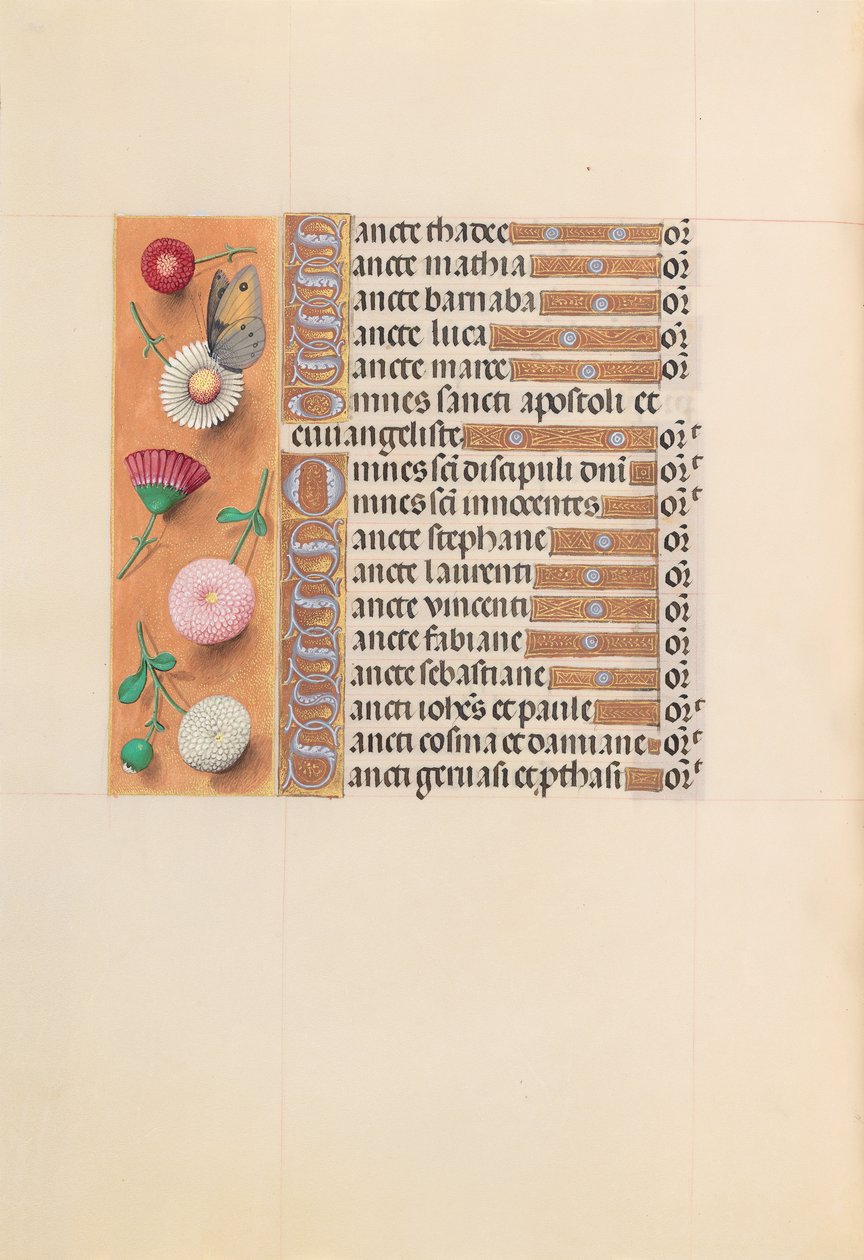 Sancte thadee or̄
Sancte mathia or̄
Sancte barnaba or̄
Sancte luca or̄
Sancte marce or̄
Omnes sancti apostoli et
euuangeliste or̄t
Omnes sc̄i discipuli dn̄i or̄t
Omnes sc̄i innocentes or̄t
Sancte stephane or̄
Sancte laurenti or̄
Sancte vincenti or̄
Sancte fabiane or̄
Sancte sebastiane or̄
Sancti ioh̄es et paule or̄t
Sancti cosma et damiane or̄t
Sancti geruasi et ꝓthasi or̄t